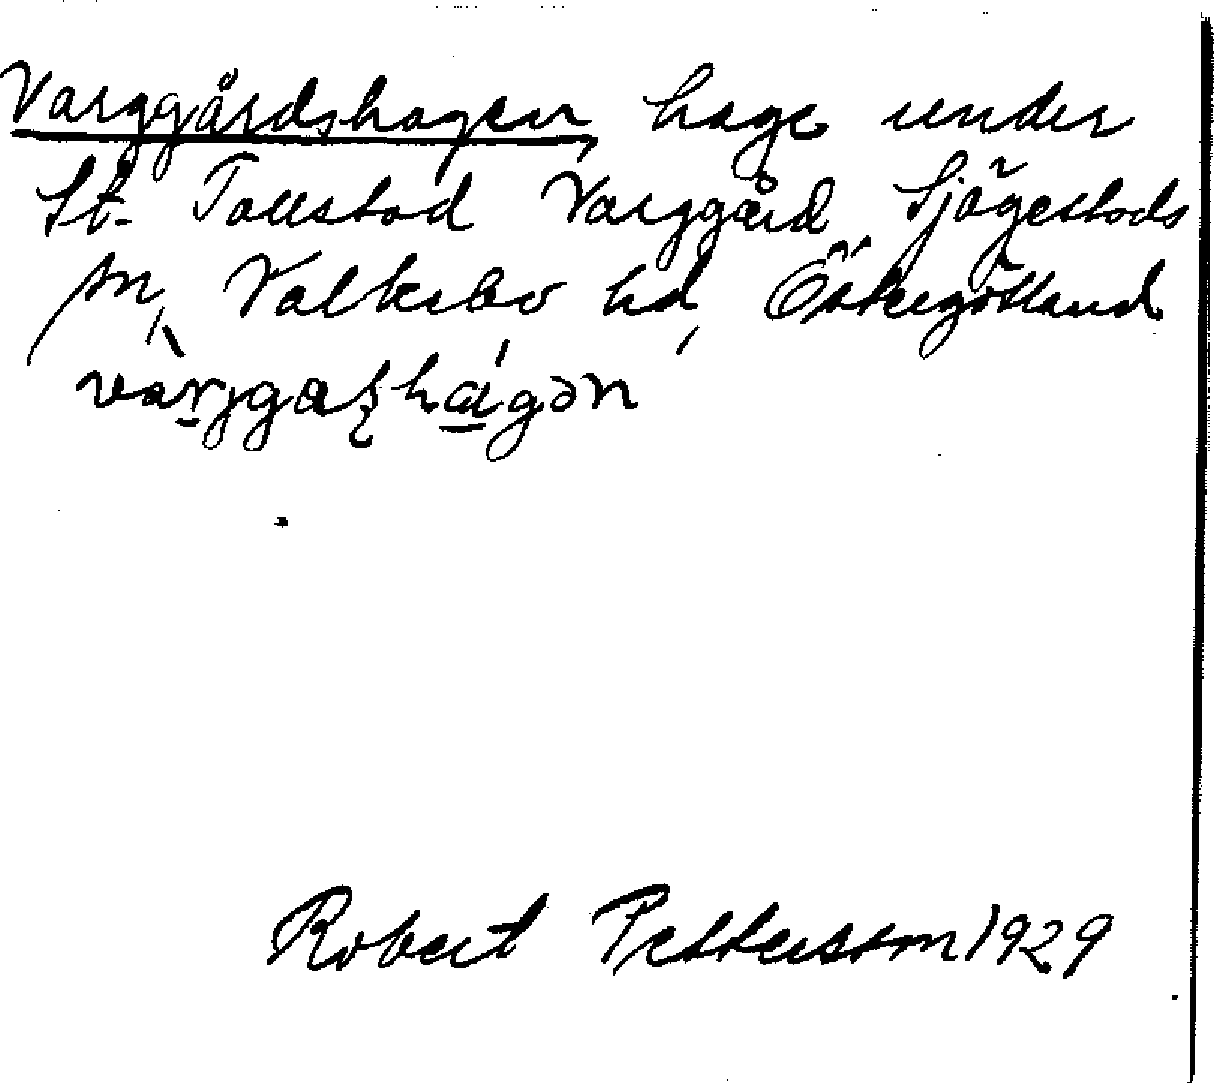 Varggårdshagen, hage under
St. Tollstad Varggård, Sjögestads
sn, Valkebo hd, Östergötland
Robert Pettersson 1929